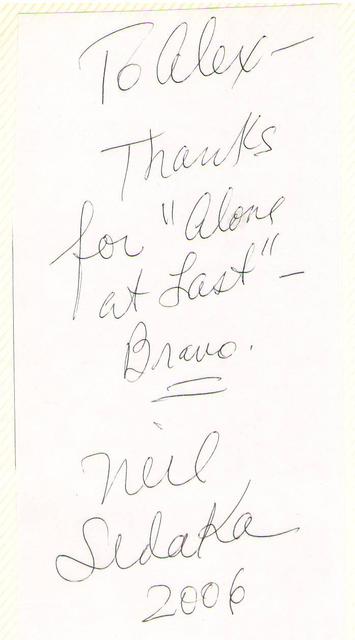 To Alex-
Thanks
for "Alone
at Last" -
Bravo.
Neil
Sedaka
2006